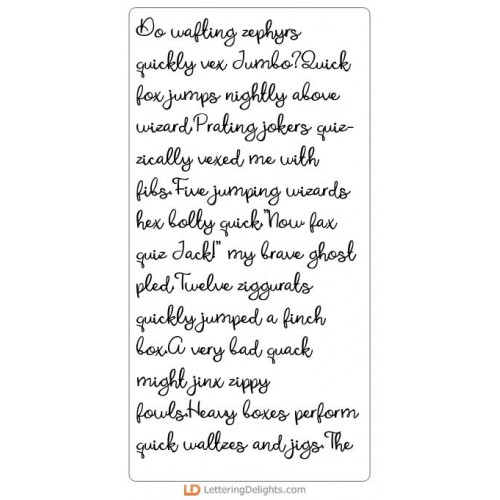 Do wafting zephyrs
quickly vex Jumbo?Quick
fox jumps nightly above
wizard.Prating jokers quiz-
zically vexed me with
fibs.Five jumping wizards
hex bolty quick."Now fax
quiz Jack!" my brave ghost
pled.Twelve ziggurats
quickly jumped a finch
box.A very bad quack
might jinx zippy
fowls.Heavy boxes perform
quick waltzes and jigs.The
LD LetteringDelights.com